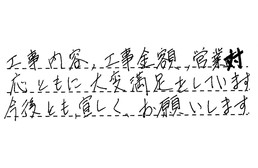 工事内容、工事金額、営業対
応ともに大変満足をしています
今後とも宜しくお願いします